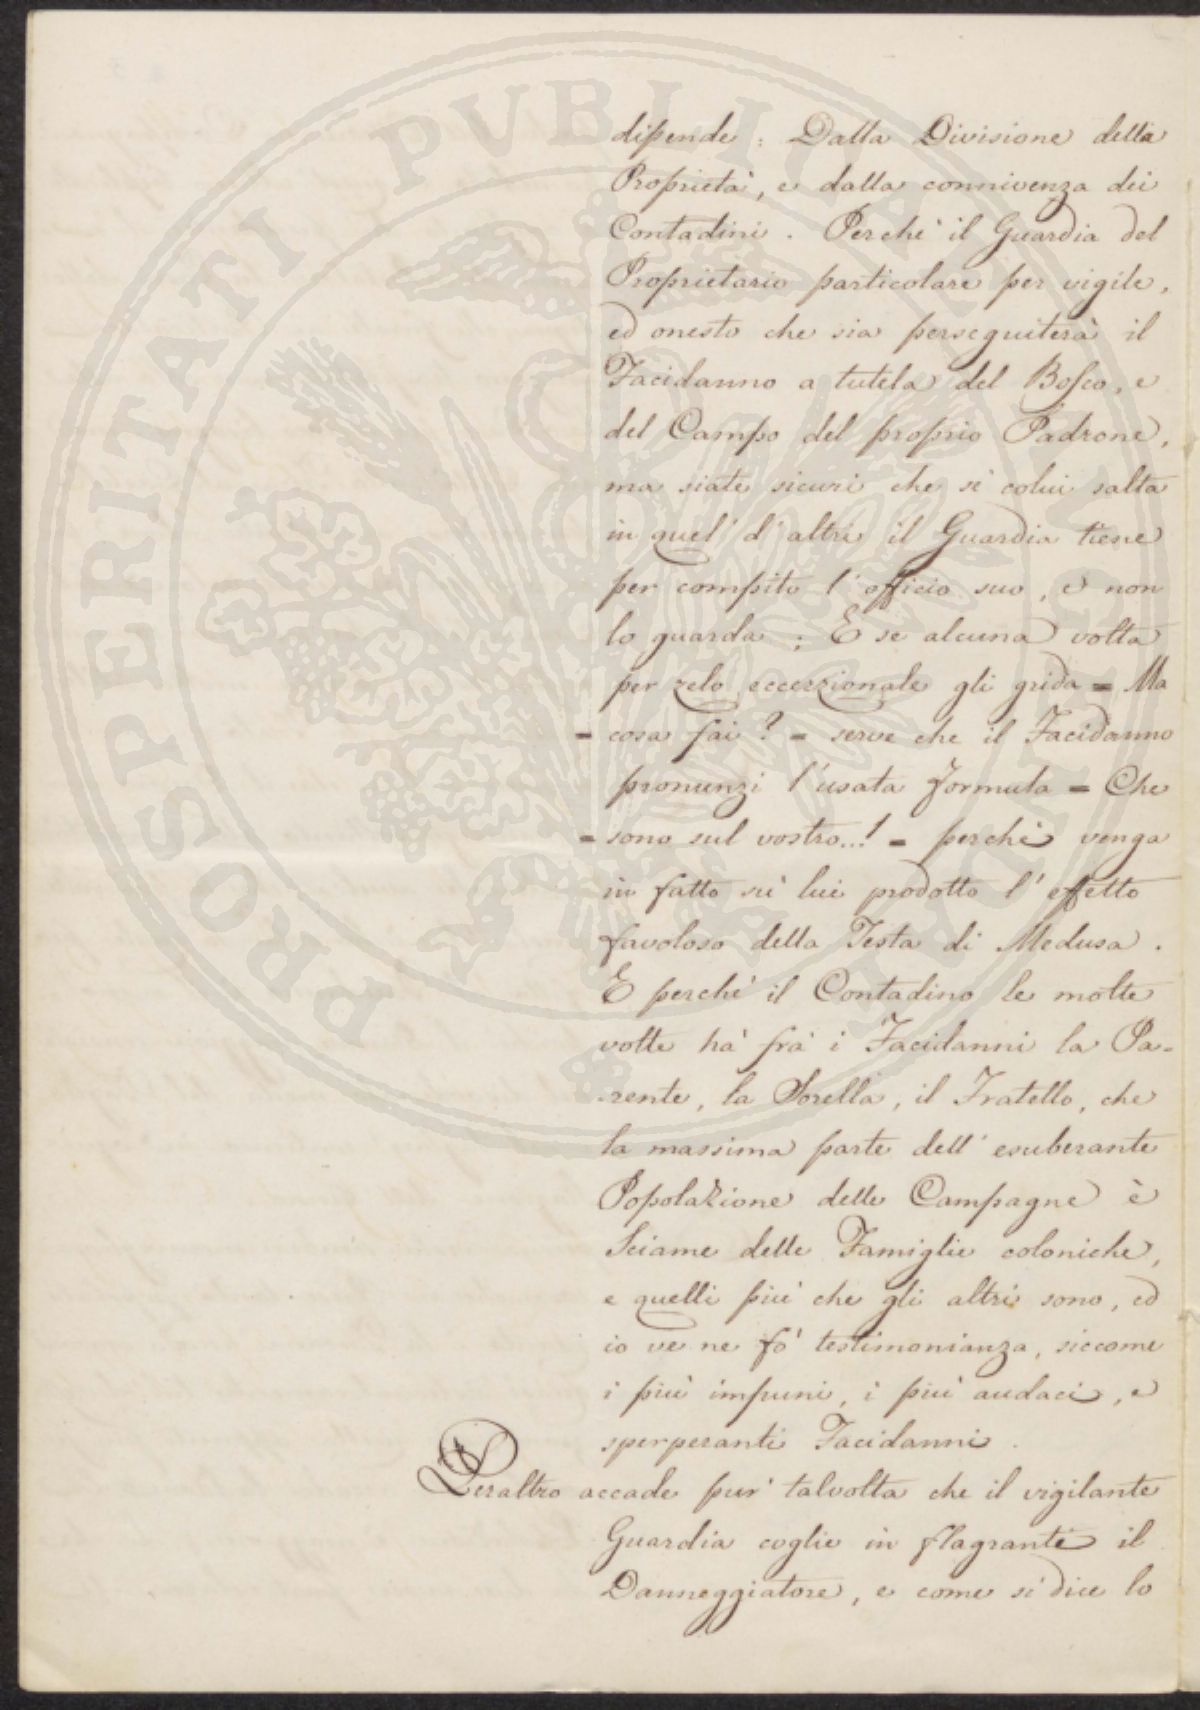 dipende : Dalla Divisione della
Proprietà, e dalla connivenza dei
Contadini . Perchè il Guardia del
Proprietario particolare per vigile,
ed onesto che sia perseguiterà il
Facidanno a tutela del Bosco, e
del Campo del proprio Padrone,
ma siate sicuri che se colui salta
in quel' d'altri il Guardia tiene
per compito l'officio suo, e non
lo guarda ; E se alcuna volta
per zelo eccezzionale gli grida = Ma
= cosa fai ? = serve che il Facidanno
pronunzi l'usata formula = Che
= sono sul vostro...! = perchè venga
in fatto sù lui prodotto l'effetto
favoloso della Testa di Medusa .
E perchè il Contadino le molte
volte hà frà i Facidanni la Pa-
rente, la Sorella, il Fratello, che
la massima parte dell'esuberante
Popolazione delle Campagne è
Sciame delle Famiglie coloniche,
e quelli più che gli altri sono, ed
io ve ne fò testimonianza, siccome
i più impuni, i più audaci, e
sperperanti Facidanni .
Peraltro accade pur' talvolta che il vigilante
Guardia coglie in flagrante il
Danneggiatore, e come si dice lo
PROSPERITATI PUBLICAE